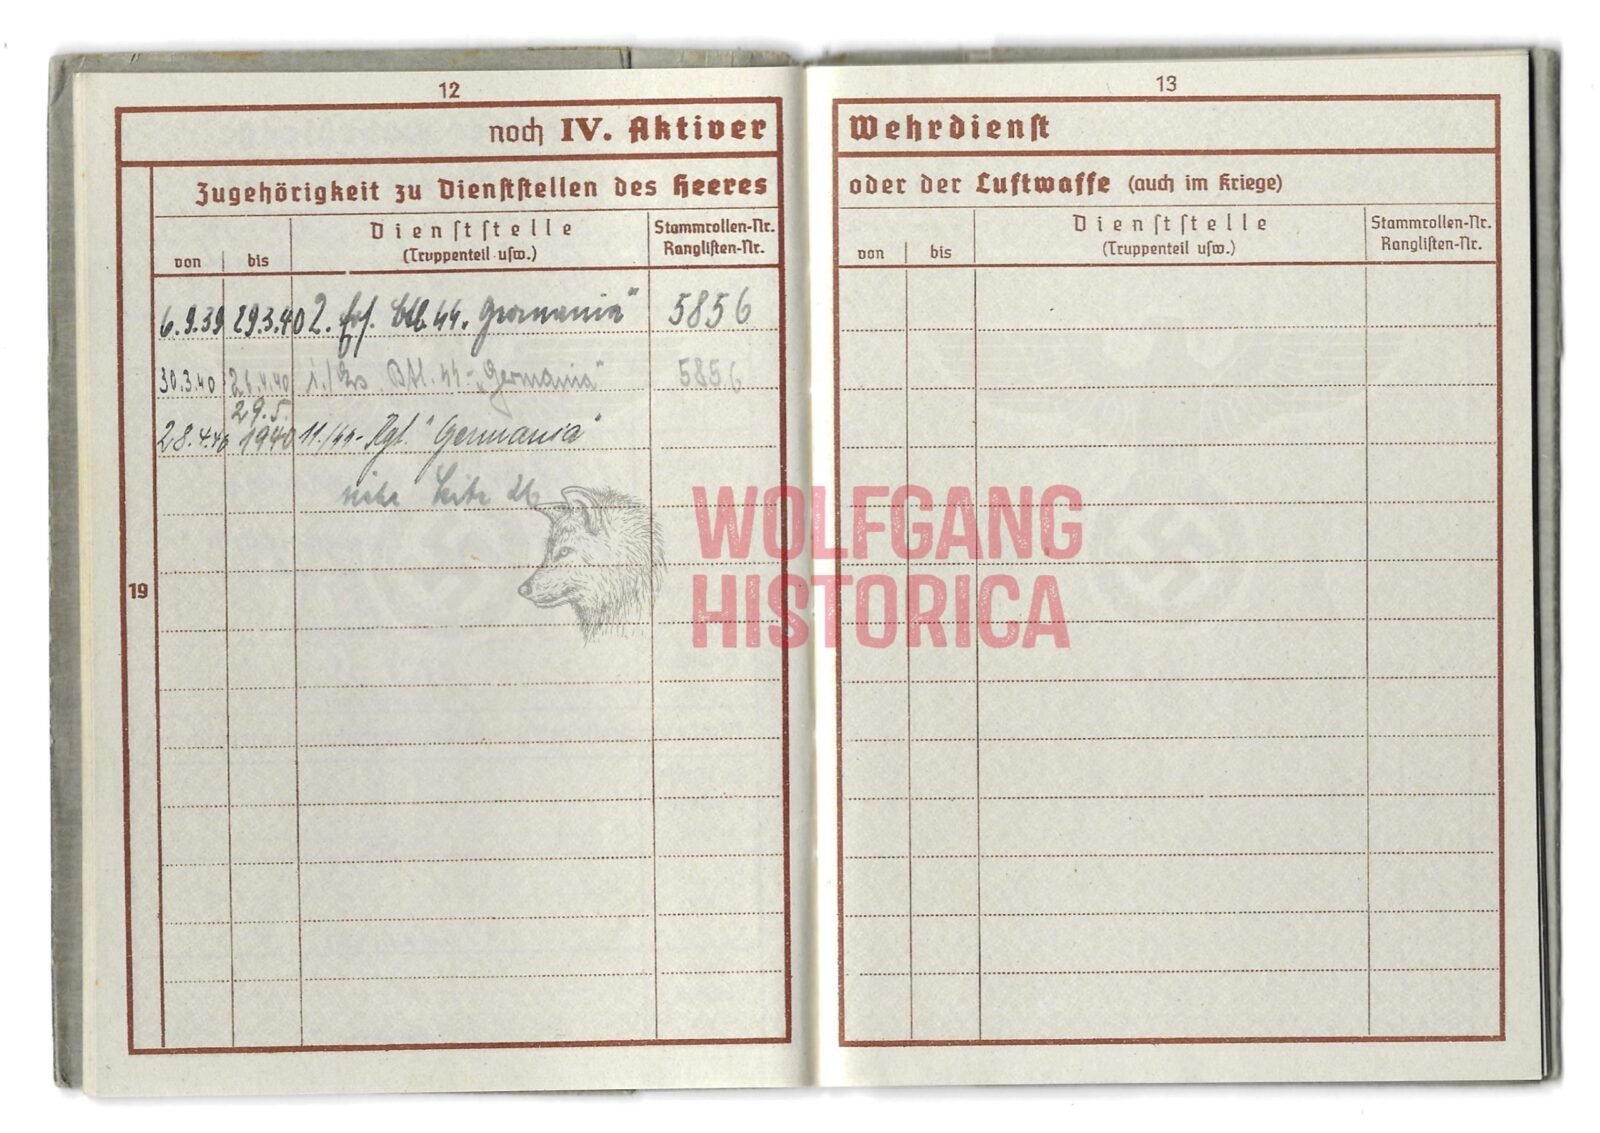 12
noch IV. Aktiver
Zugehörigkeit zu Dienststellen des Heeres
von
bis
Dienststelle
(Truppenteil usw.)
Stammrollen-Nr.
Ranglisten-Nr.
6.9.39 29.3.40 2. Ers. Btl. SS. Germania" 5856
30.3.40 26.4.40 1./Ers. Btl. SS-„Germania" 5856
29.5.
28.4.40 1940 11./SS-Rgt. "Germania"
siehe Seite 26
19
13
Wehrdienst
oder der Luftwaffe (auch im Kriege)
von
bis
Dienststelle
(Truppenteil usw.)
Stammrollen-Nr.
Ranglisten-Nr.
WOLFGANG
HISTORICA